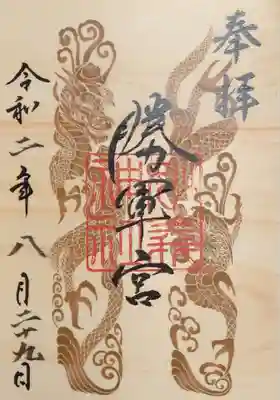 奉拝
勝軍宮
令和二年八月二十九日